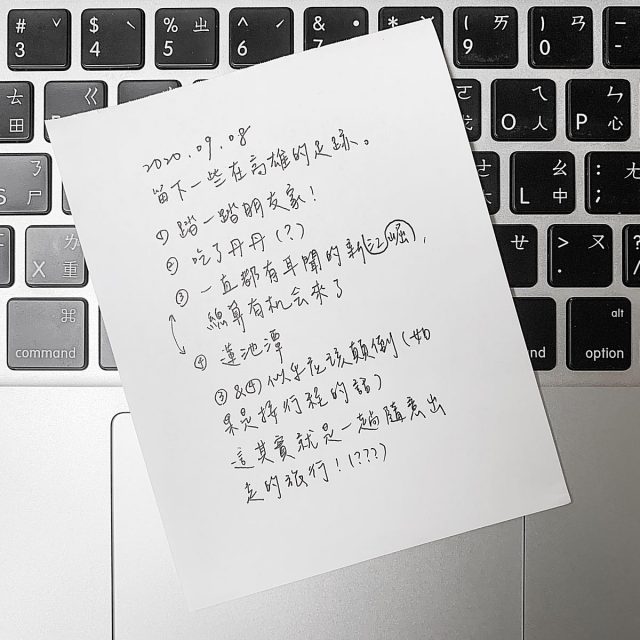 # ˇ
3
$ ˋ
4
% ㄓ
5
^ ˊ
6
& ˙
7
*
( ㄞ
9
) ㄢ
0
—
-
ㄊ
田
ㄆ
ㄟ
O 人
ㄣ
P 心
ㄋ
S 尸
ㄠ
L 中
:
;
X 重
ㄝ
> ㄡ
.
?
⌘
command
alt
option
2020.09.08
留下一些在高雄的足跡。
① 踏一踏朋友家！
② 吃了丹丹（？）
③ 一直都有耳聞的新江崛，
總算有机会來了
④ 蓮池潭
③&④ 似乎应该顛倒（如
果是按行程的話）
這其實就是一趟隨意出
走的旅行！（???）